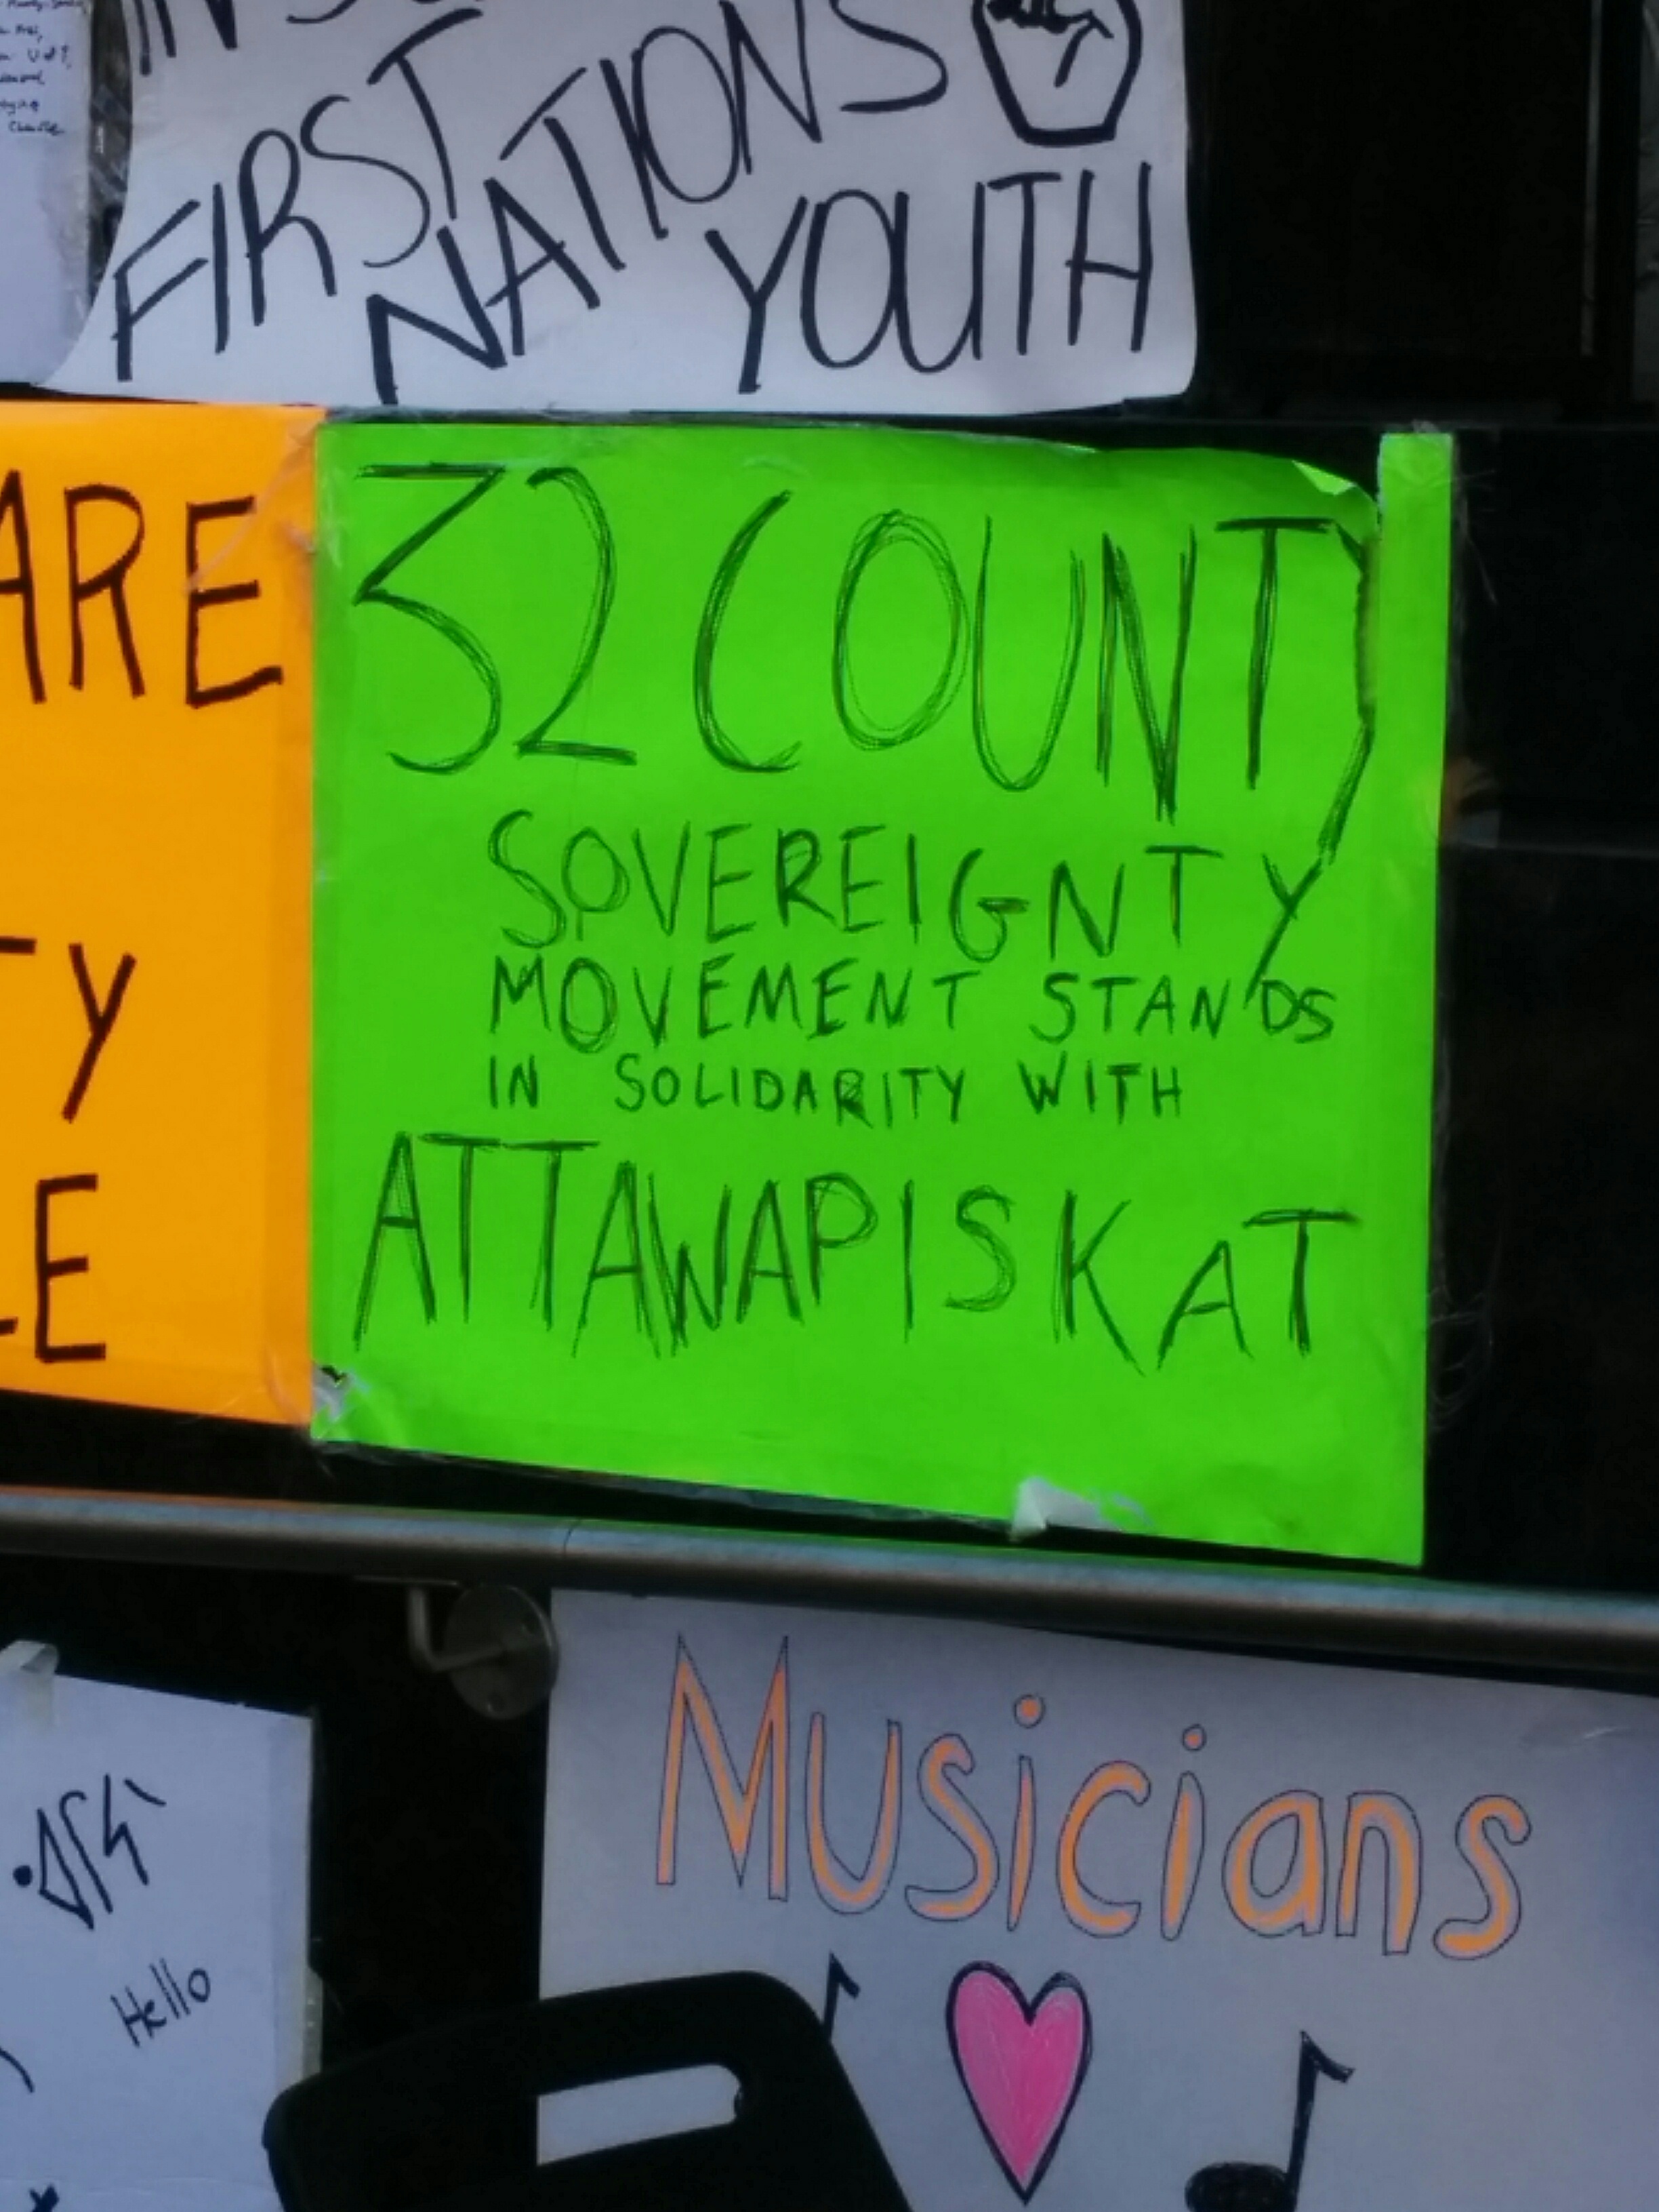 FIRST
NATIONS
YOUTH
ARE
32 COUNTY
SOVEREIGNTY
MOVEMENT STANDS
IN SOLIDARITY WITH
ATTAWAPISKAT
Musicians
Hello